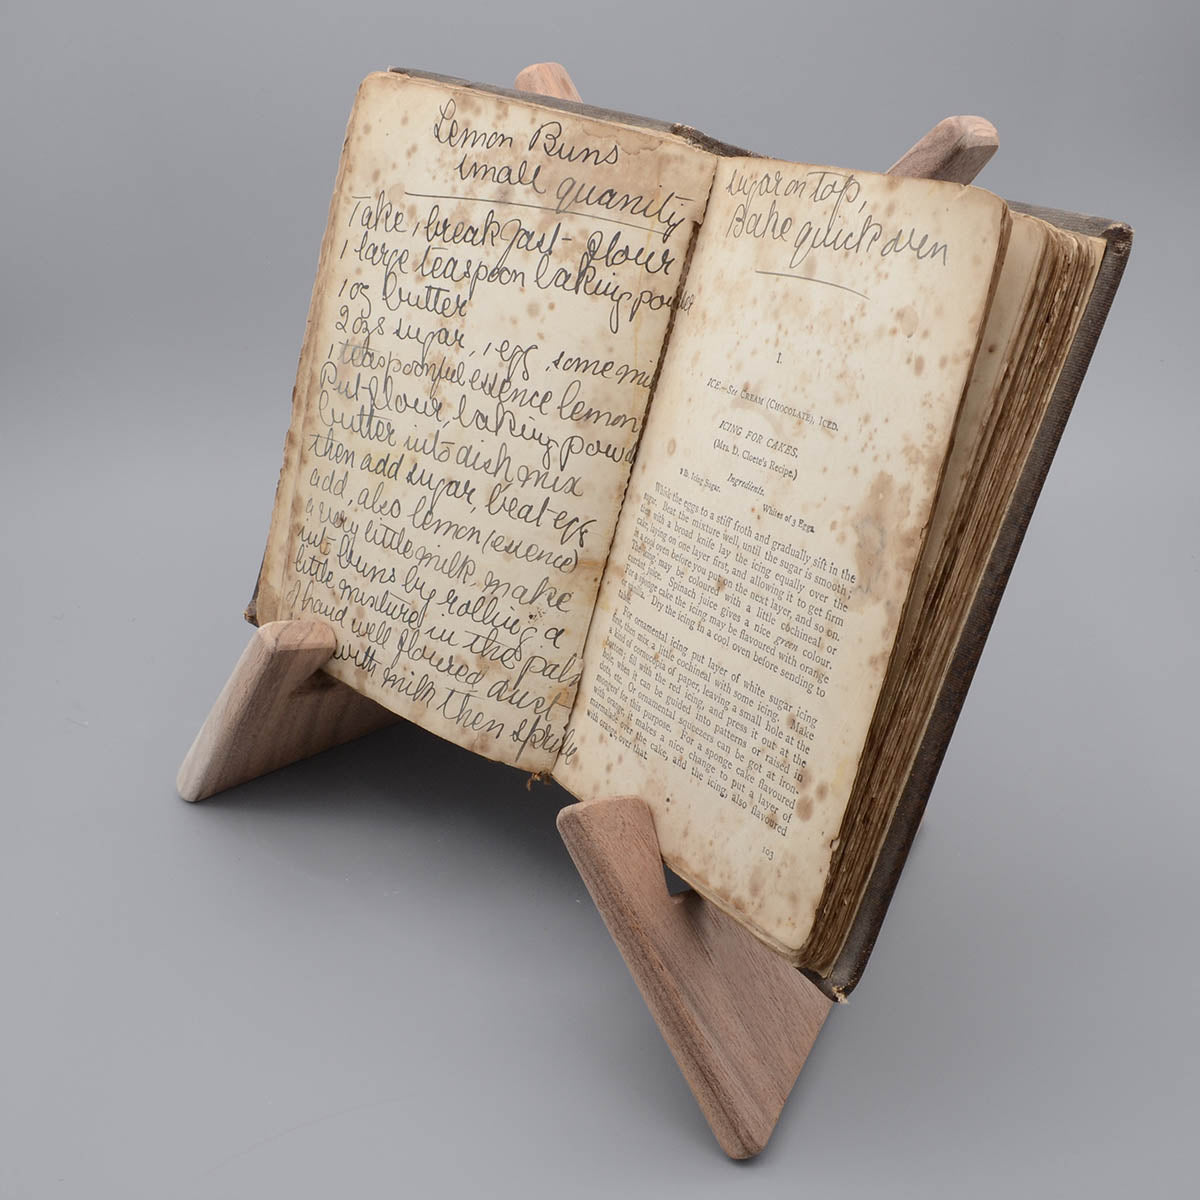 Lemon Buns
small quantity
Take 1 breakfast- flour
1 large teaspoon baking powder
1 oz butter
2 ozs sugar, 1 egg, some milk
1 teaspoonful essence lemon
Put flour, baking powd
butter into dish mix
then add sugar, beat egg
add, also lemon (essence)
a very little milk, make
into buns by rolling a
little mixture in the palm
of hand well floured dust
with milk then sprikle
sugar on top,
Bake quick oven
I.
ICE.—See Cream (Chocolate), Iced.
ICING FOR CAKES.
(Mrs. D. Cloete's Recipe.)
Ingredients.
1 lb. Icing Sugar. Whites of 3 Eggs.
Whisk the eggs to a stiff froth and gradually sift in the
sugar. Beat the mixture well, until the sugar is smooth;
then with a broad knife lay the icing equally over the
cake, laying on one layer first, and allowing it to get firm
in a cool oven before you put on the next layer, and so on.
The icing may be coloured with a little cochineal or
currant juice. Spinach juice gives a nice green colour.
For a sponge cake the icing may be flavoured with orange
or vanilla. Dry the icing in a cool oven before sending to
table.
For ornamental icing put layer of white sugar icing
first, then mix a little cochineal with some icing. Make
a kind of cornucopia of paper, leaving a small hole at the
bottom; fill with the red icing, and press it out at the
hole, when it can be guided into patterns or raised in
dots, etc. Or ornamental squeezers can be got at iron-
mongers' for this purpose. For a sponge cake flavoured
with orange it makes a nice change to put a layer of
marmalade over the cake, add the icing, also flavoured
with orange, over that.
103